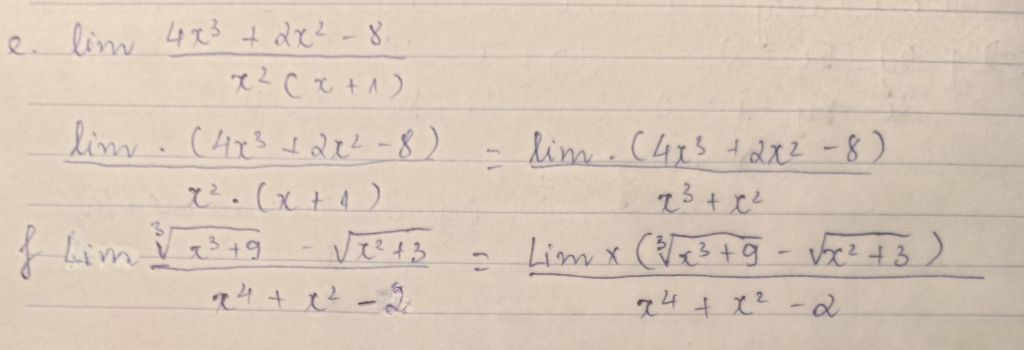 e. lim (4x³ + 2x² - 8) / (x² (x + 1))
lim . (4x³ + 2x² - 8) / (x² . (x + 1)) = lim . (4x³ + 2x² - 8) / (x³ + x²)
f Lim (∛(x³+9) - √(x²+3)) / (x⁴ + x² - 2) = Lim x (∛(x³+9) - √(x²+3)) / (x⁴ + x² - 2)